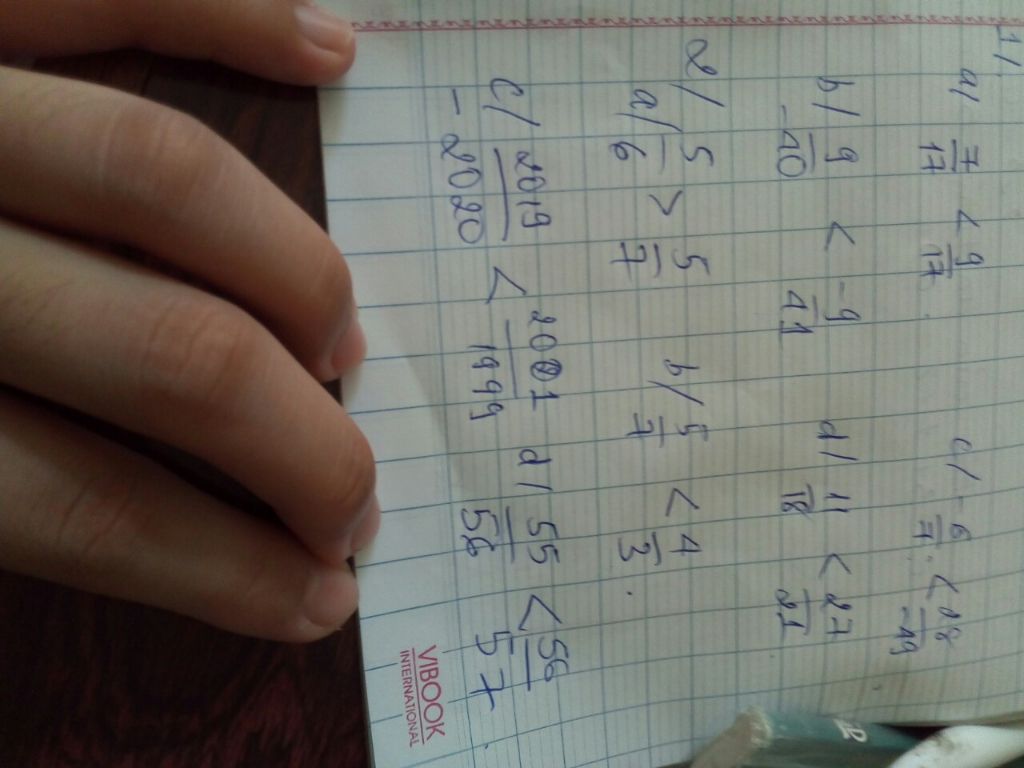 1/.
a/ 7/17 < 9/17. c/ -6/7 < 28/-49
b/ 9/-40 < -9/41 d/ 11/18 < 27/21
2/
a/ 5/6 > 5/7 b/ 5/7 < 4/3.
c/ -2019/2020 < 2001/1999 d/ 55/56 < 56/57
VIBOOK
INTERNATIONAL